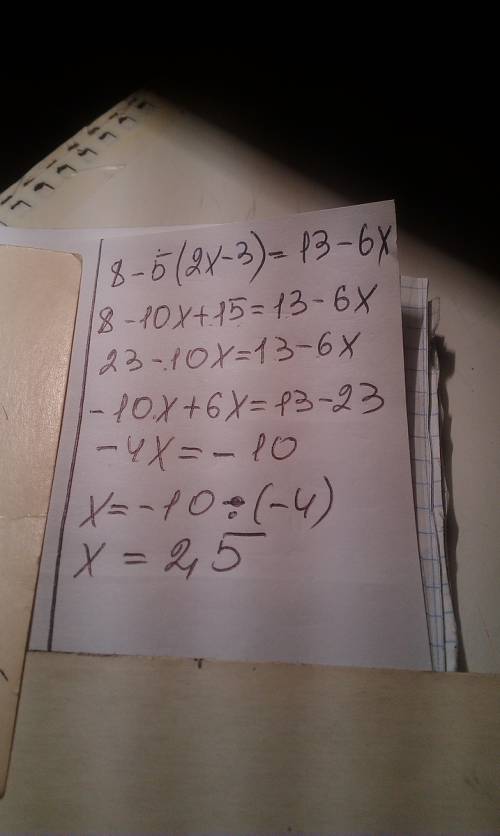 8-5(2x-3)=13-6x
8-10x+15=13-6x
23-10x=13-6x
-10x+6x=13-23
-4x=-10
x=-10÷(-4)
x=2,5